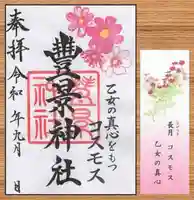 奉拝
令和 年九月 日
豊景神社
乙女の真心をもつ
コスモス
長月 コスモス
乙女の真心